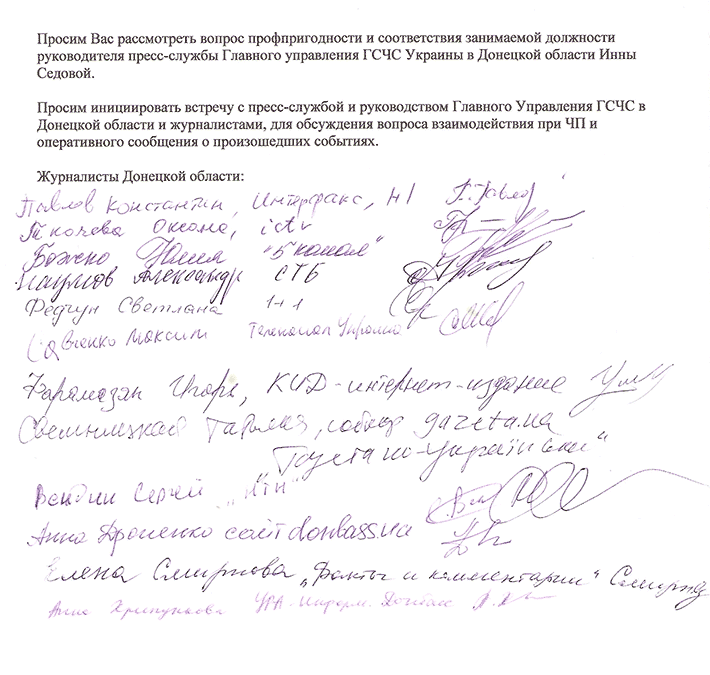 Просим Вас рассмотреть вопрос профпригодности и соответствия занимаемой должности
руководителя пресс-службы Главного управления ГСЧС Украины в Донецкой области Инны
Седовой.
Просим инициировать встречу с пресс-службой и руководством Главного Управления ГСЧС в
Донецкой области и журналистами, для обсуждения вопроса взаимодействия при ЧП и
оперативного сообщения о произошедших событиях.
Журналисты Донецкой области:
Павлов Константин, Интерфакс, Н1
Ткачева Оксана, ictv
Божко Юлия "5 канал"
Наумов Александр СТБ
Федчун Светлана 1+1
Савенко Максим Телеканал Украина
Фарамазян Игорь, KИD-интернет-издание
Светлицкая Татьяна, собкор gazeta.ua
Газета по-українськи"
Вендин Сергей
Анна сайт donbass.ua
Елена Смирнова "Факты и комментарии"
Анна УРА-Информ. Донбасс